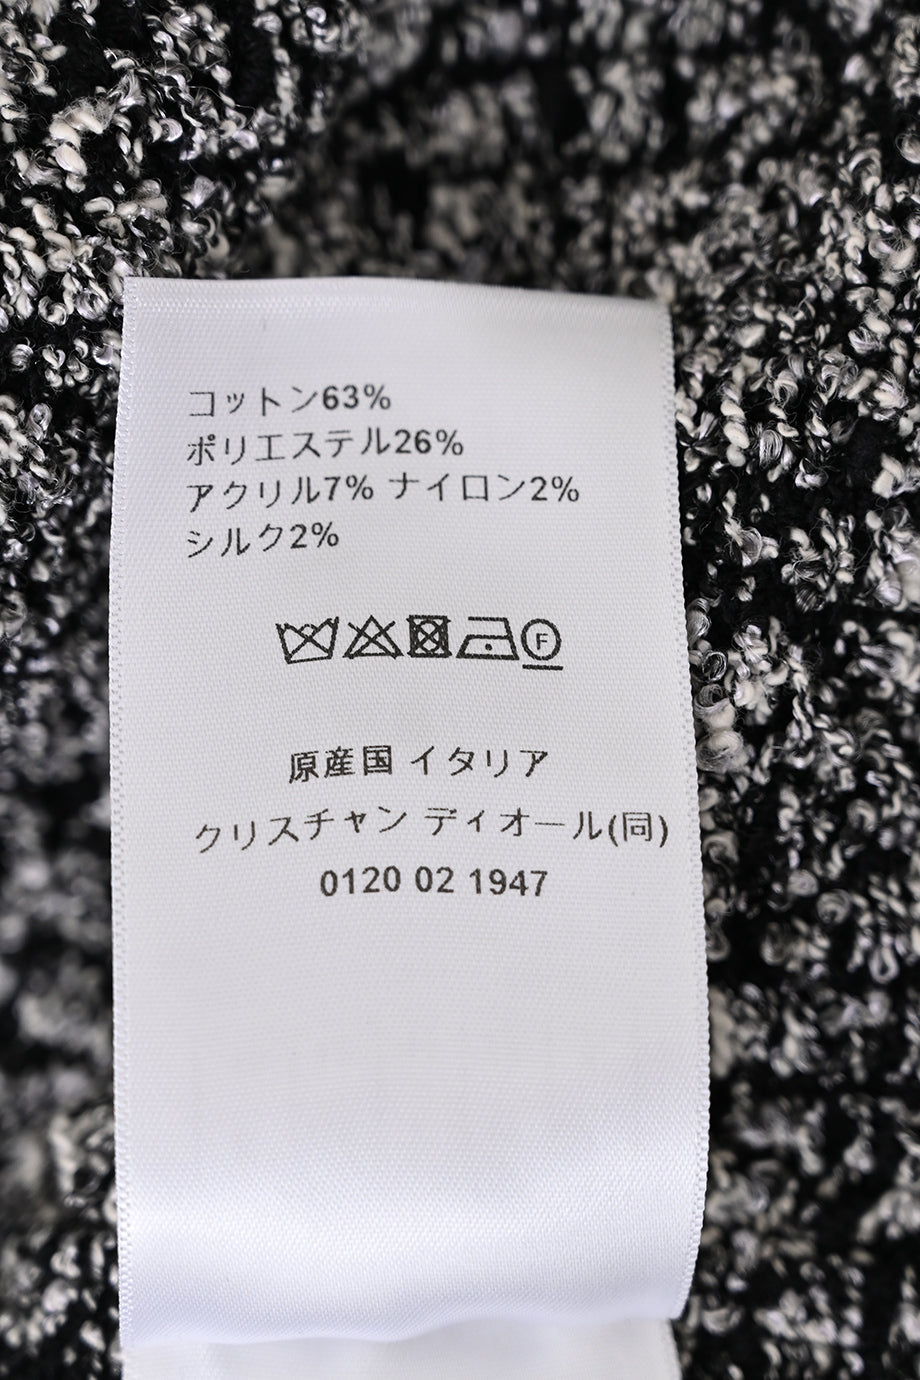 コットン63%
ポリエステル26%
アクリル7% ナイロン2%
シルク2%
F
原産国 イタリア
クリスチャン ディオール(同)
0120 02 1947